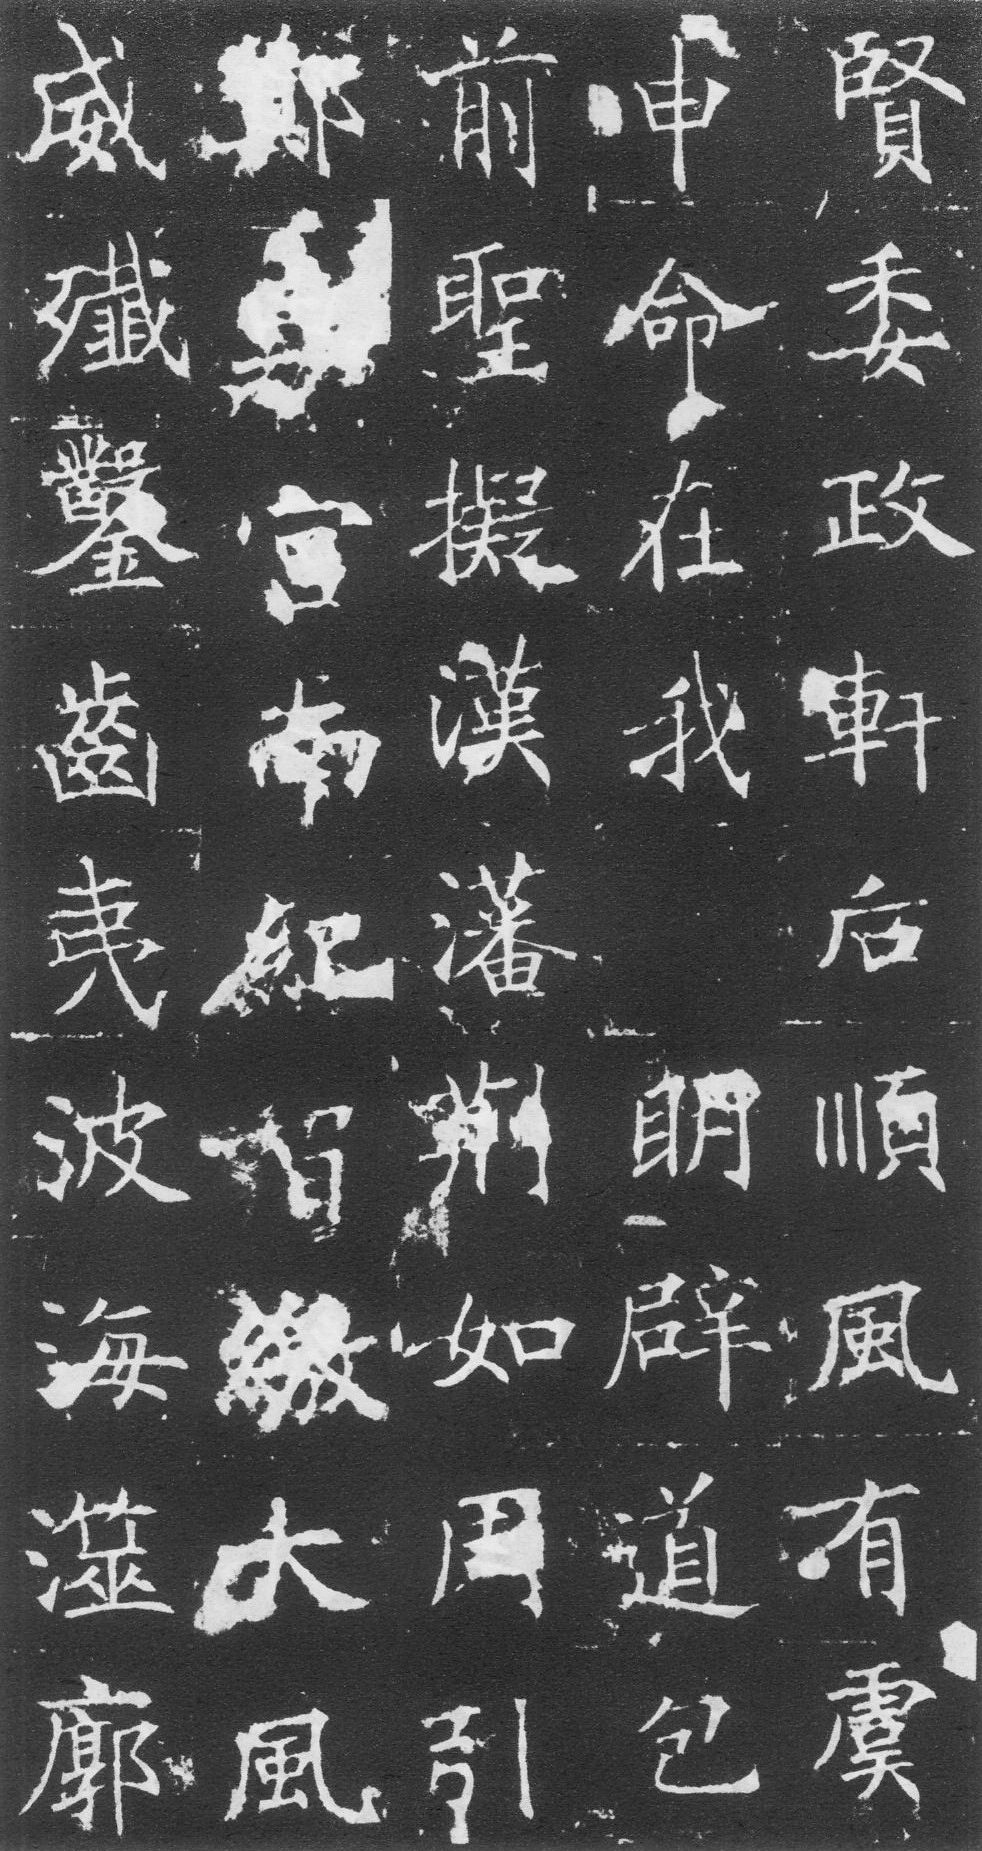 賢委政軒后順風有虞
申命在我明辟道包
前聖擬漢藩荊如周引
鄭宮南紀繳大風
威殲鑿齒夷波海澨廓